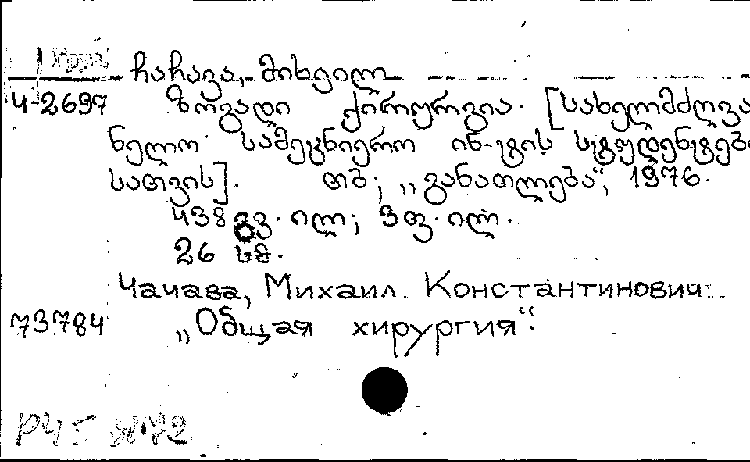 ჩაჩავა, მიხეილ
Ч-2697 ზოგადი ქირურგია. [სახელმძღვა
ნელო სამედიცინო ინ-ტის სტუდენტებ
სათვის]. თბ; „განათლება“, 1976.
438 გვ. ილ; 3 ფ. ილ.
26 სმ.
Чачава, Михаил Константинович.
73784 „Общая хирургия“.